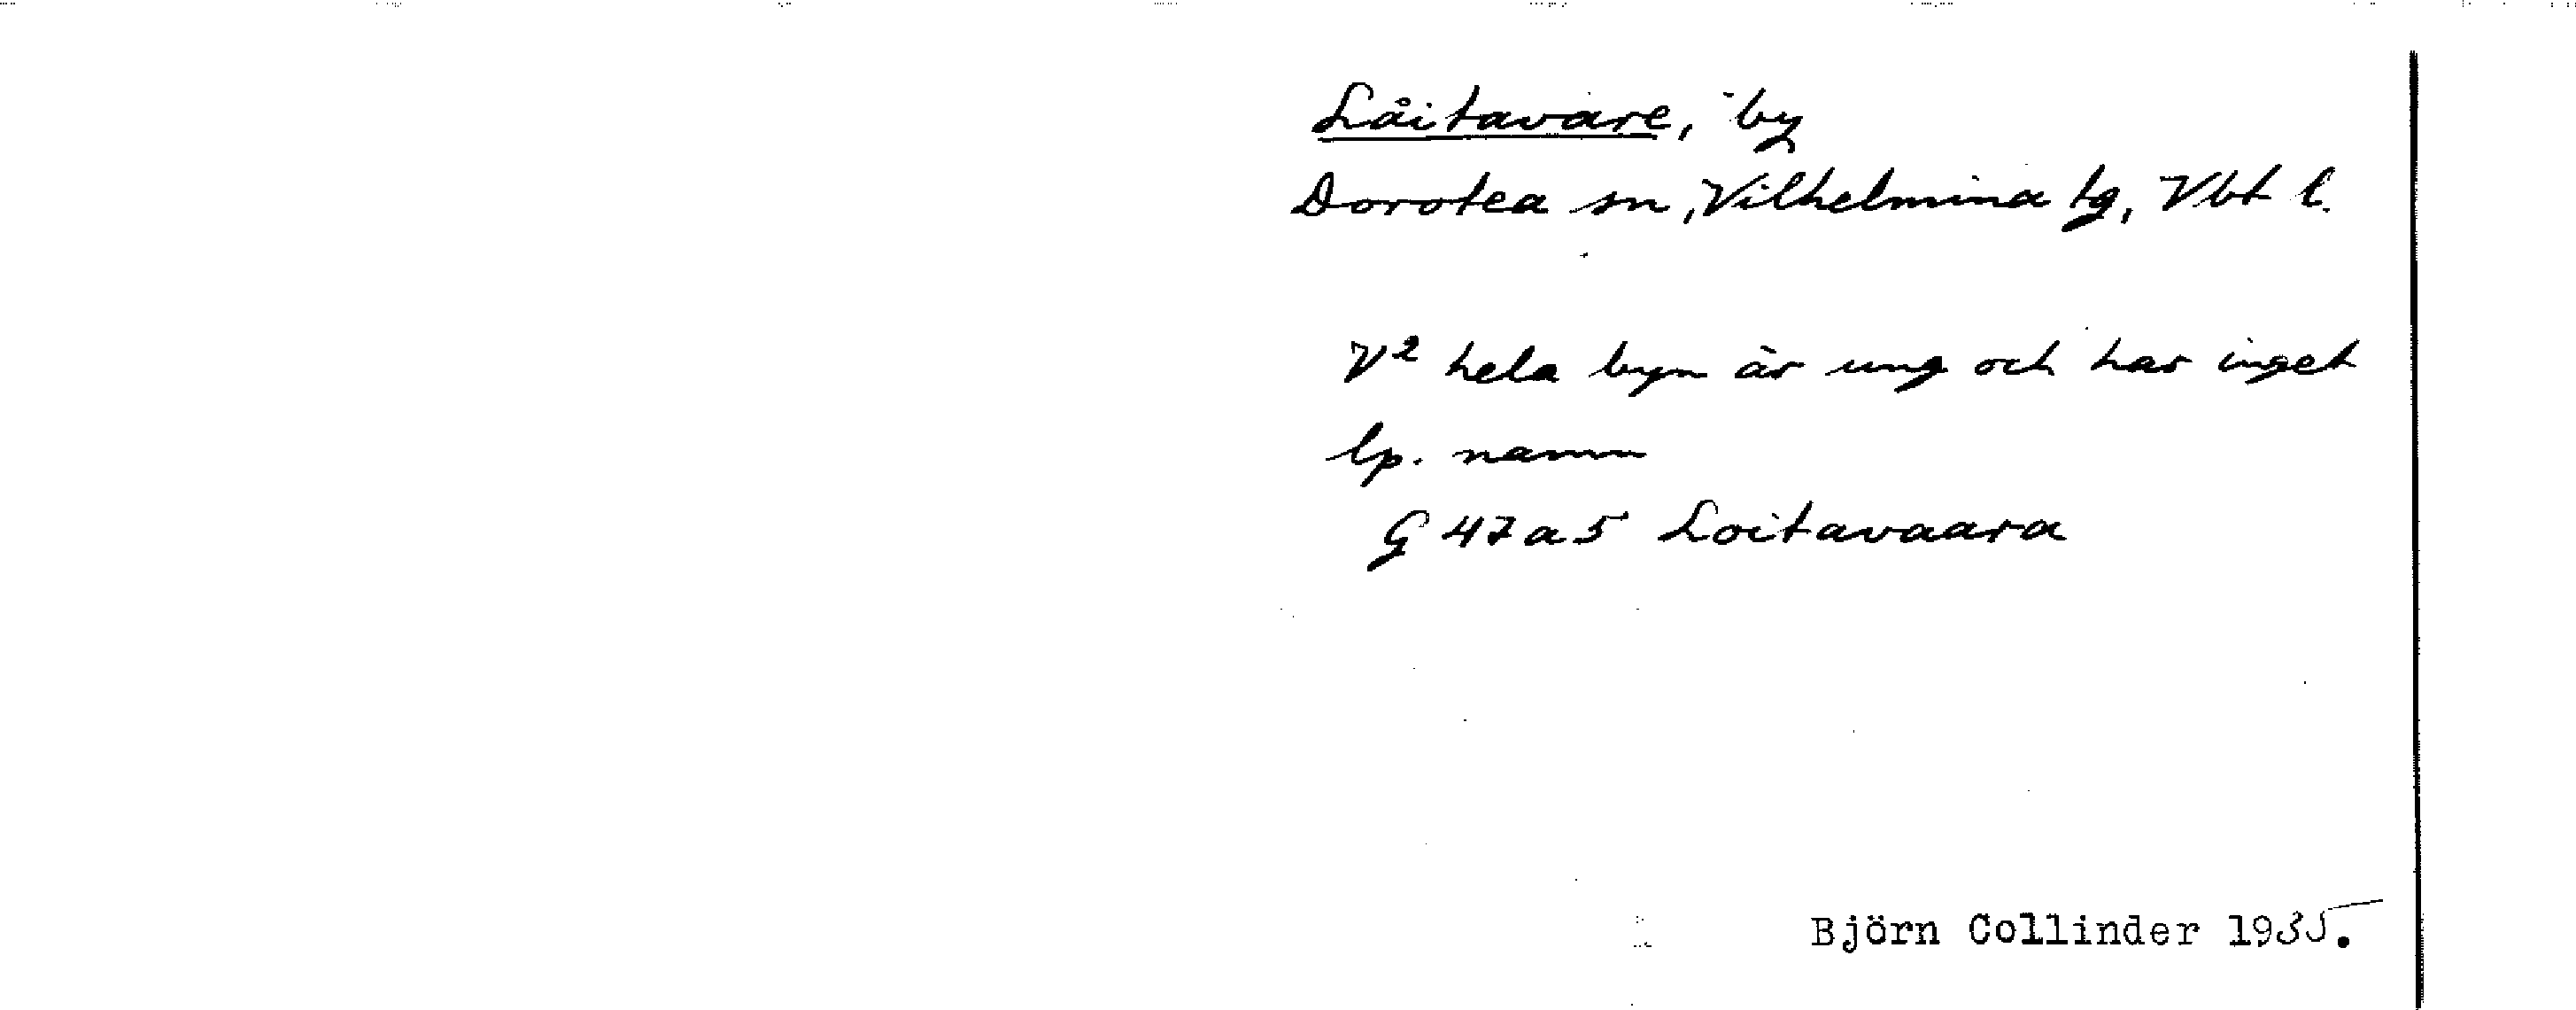 Låitavare, by
Dorotea sn, Vilhelmina tg, Vbt l.
V² hela byn är ung och har inget
lp. namn
G 47 a 5 Loitavaara
Björn Collinder 1935.